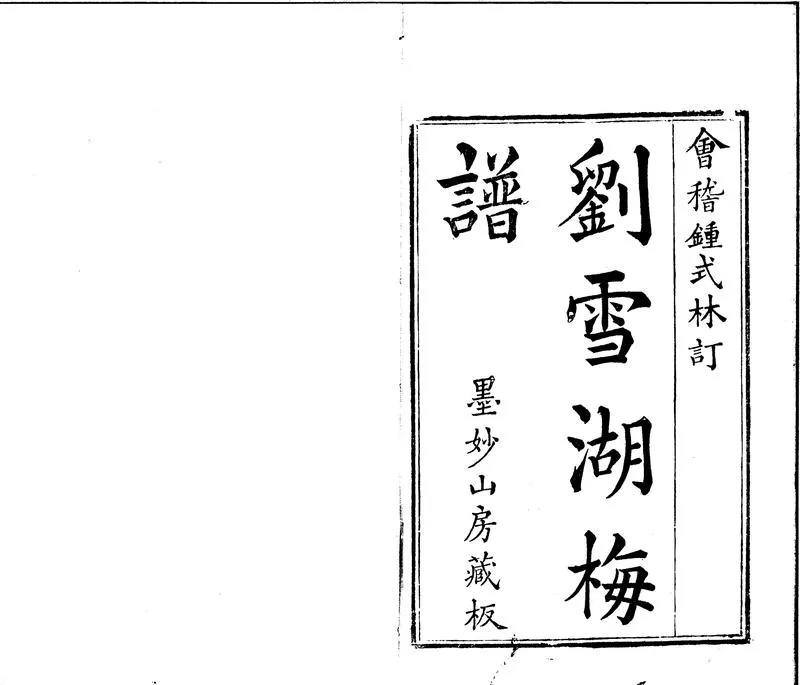 會稽鍾式林訂
劉雪湖梅
譜
墨妙山房藏板